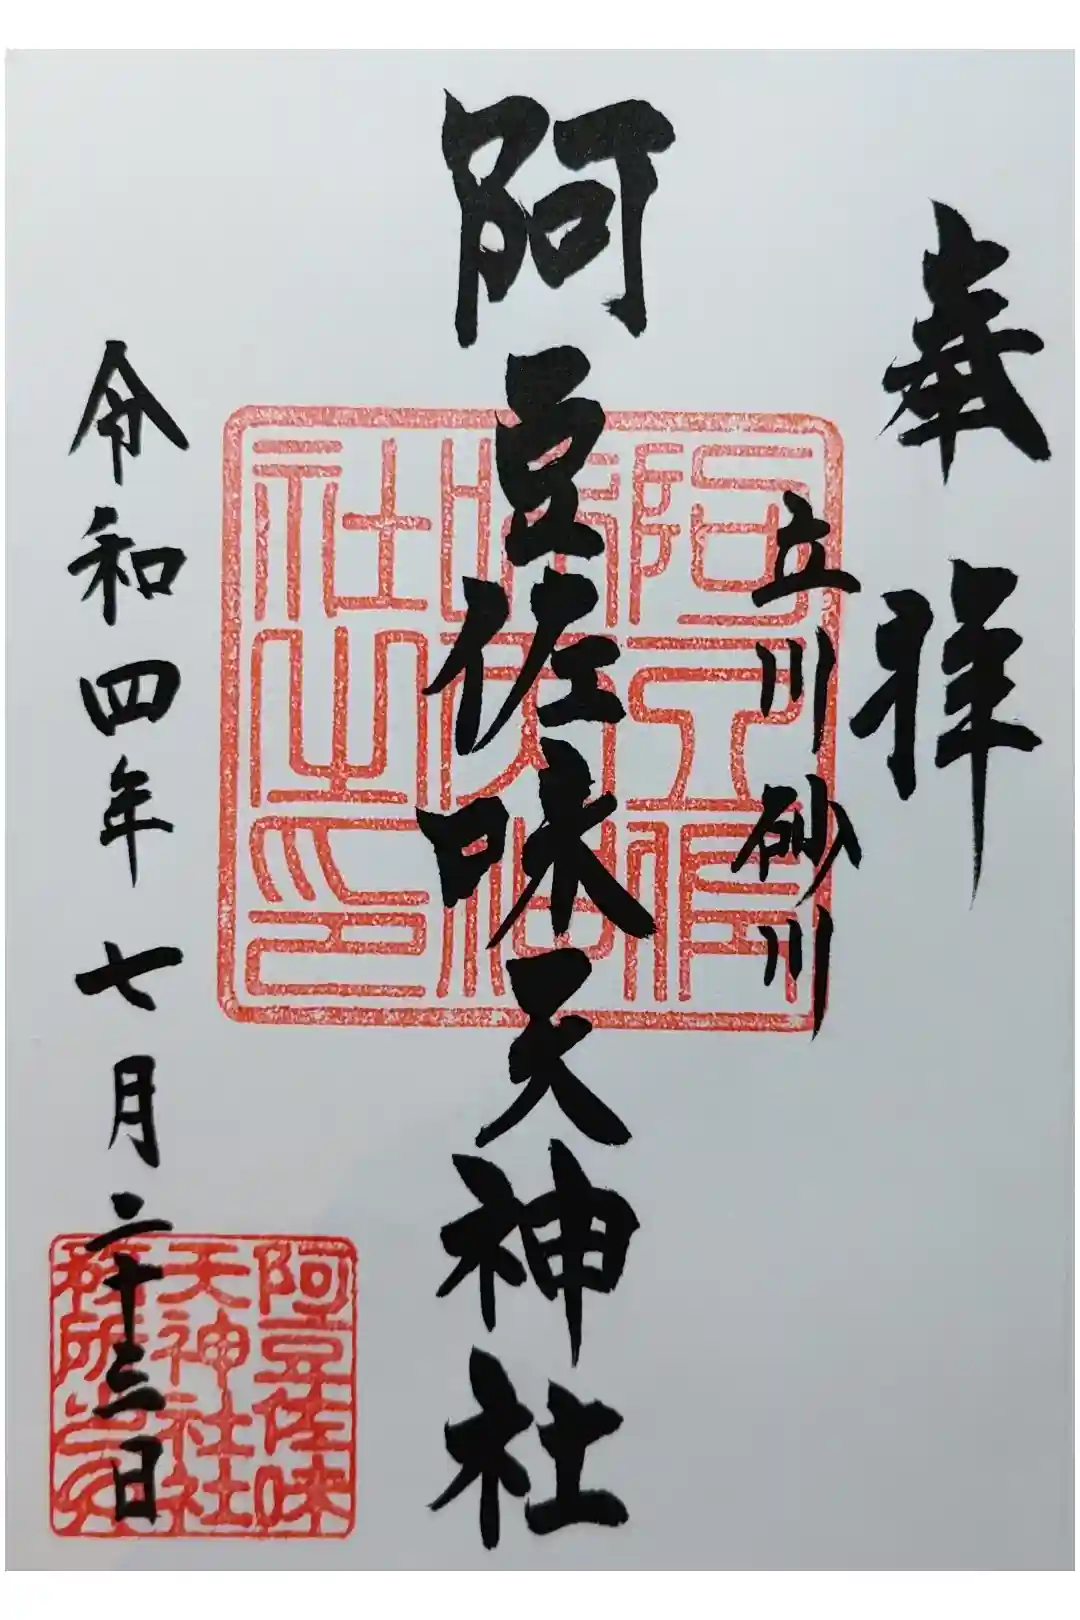 奉拝
立川砂川
阿豆佐味天神社
令和四年七月二十三日
阿豆佐味
天神社社
務所之印